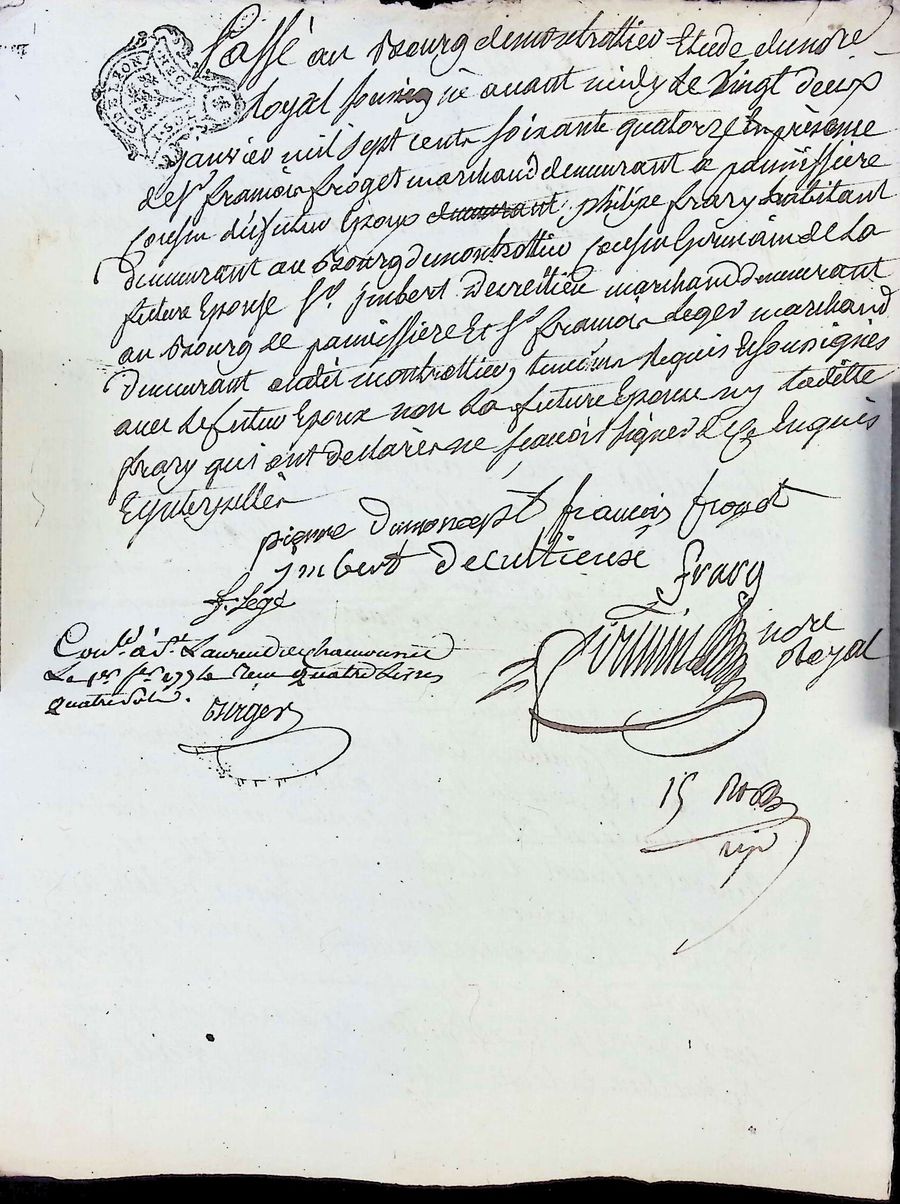 Passé au Bourg de montrottier Etude du no.re
Royal soussigné avant midy le Vingt deux
janvier mil sept cents soixante quatorze En présence
de Sr. françois froget marchand demeurant a pannissiere
Cousin dufutur Epoux demeurant philipe frary habitant
demeurant au Bourg de montrottier Cousin Germain de La
future Epouse Sr. jmbert Decrettieu marchand demeurant
au Bourg de pannissiere Et Sr. françois Leger marchand
Demeurant audit montrottier, temoins Requis Et soussignés
avec Lefutur Epoux non La future Epouse ny Laditte
frary qui ont declarés ne sçavoir signer de Ce Enquis
Et jnterpellés
pierre Dumoncept françois froget
jmbert Decultieux frary
f. Legé
Conlé. à St. Laurent de Chamousset
Le 1er. fer. 1774 Reçu quatre Livres
quatre sols.
no.re
Royal
15